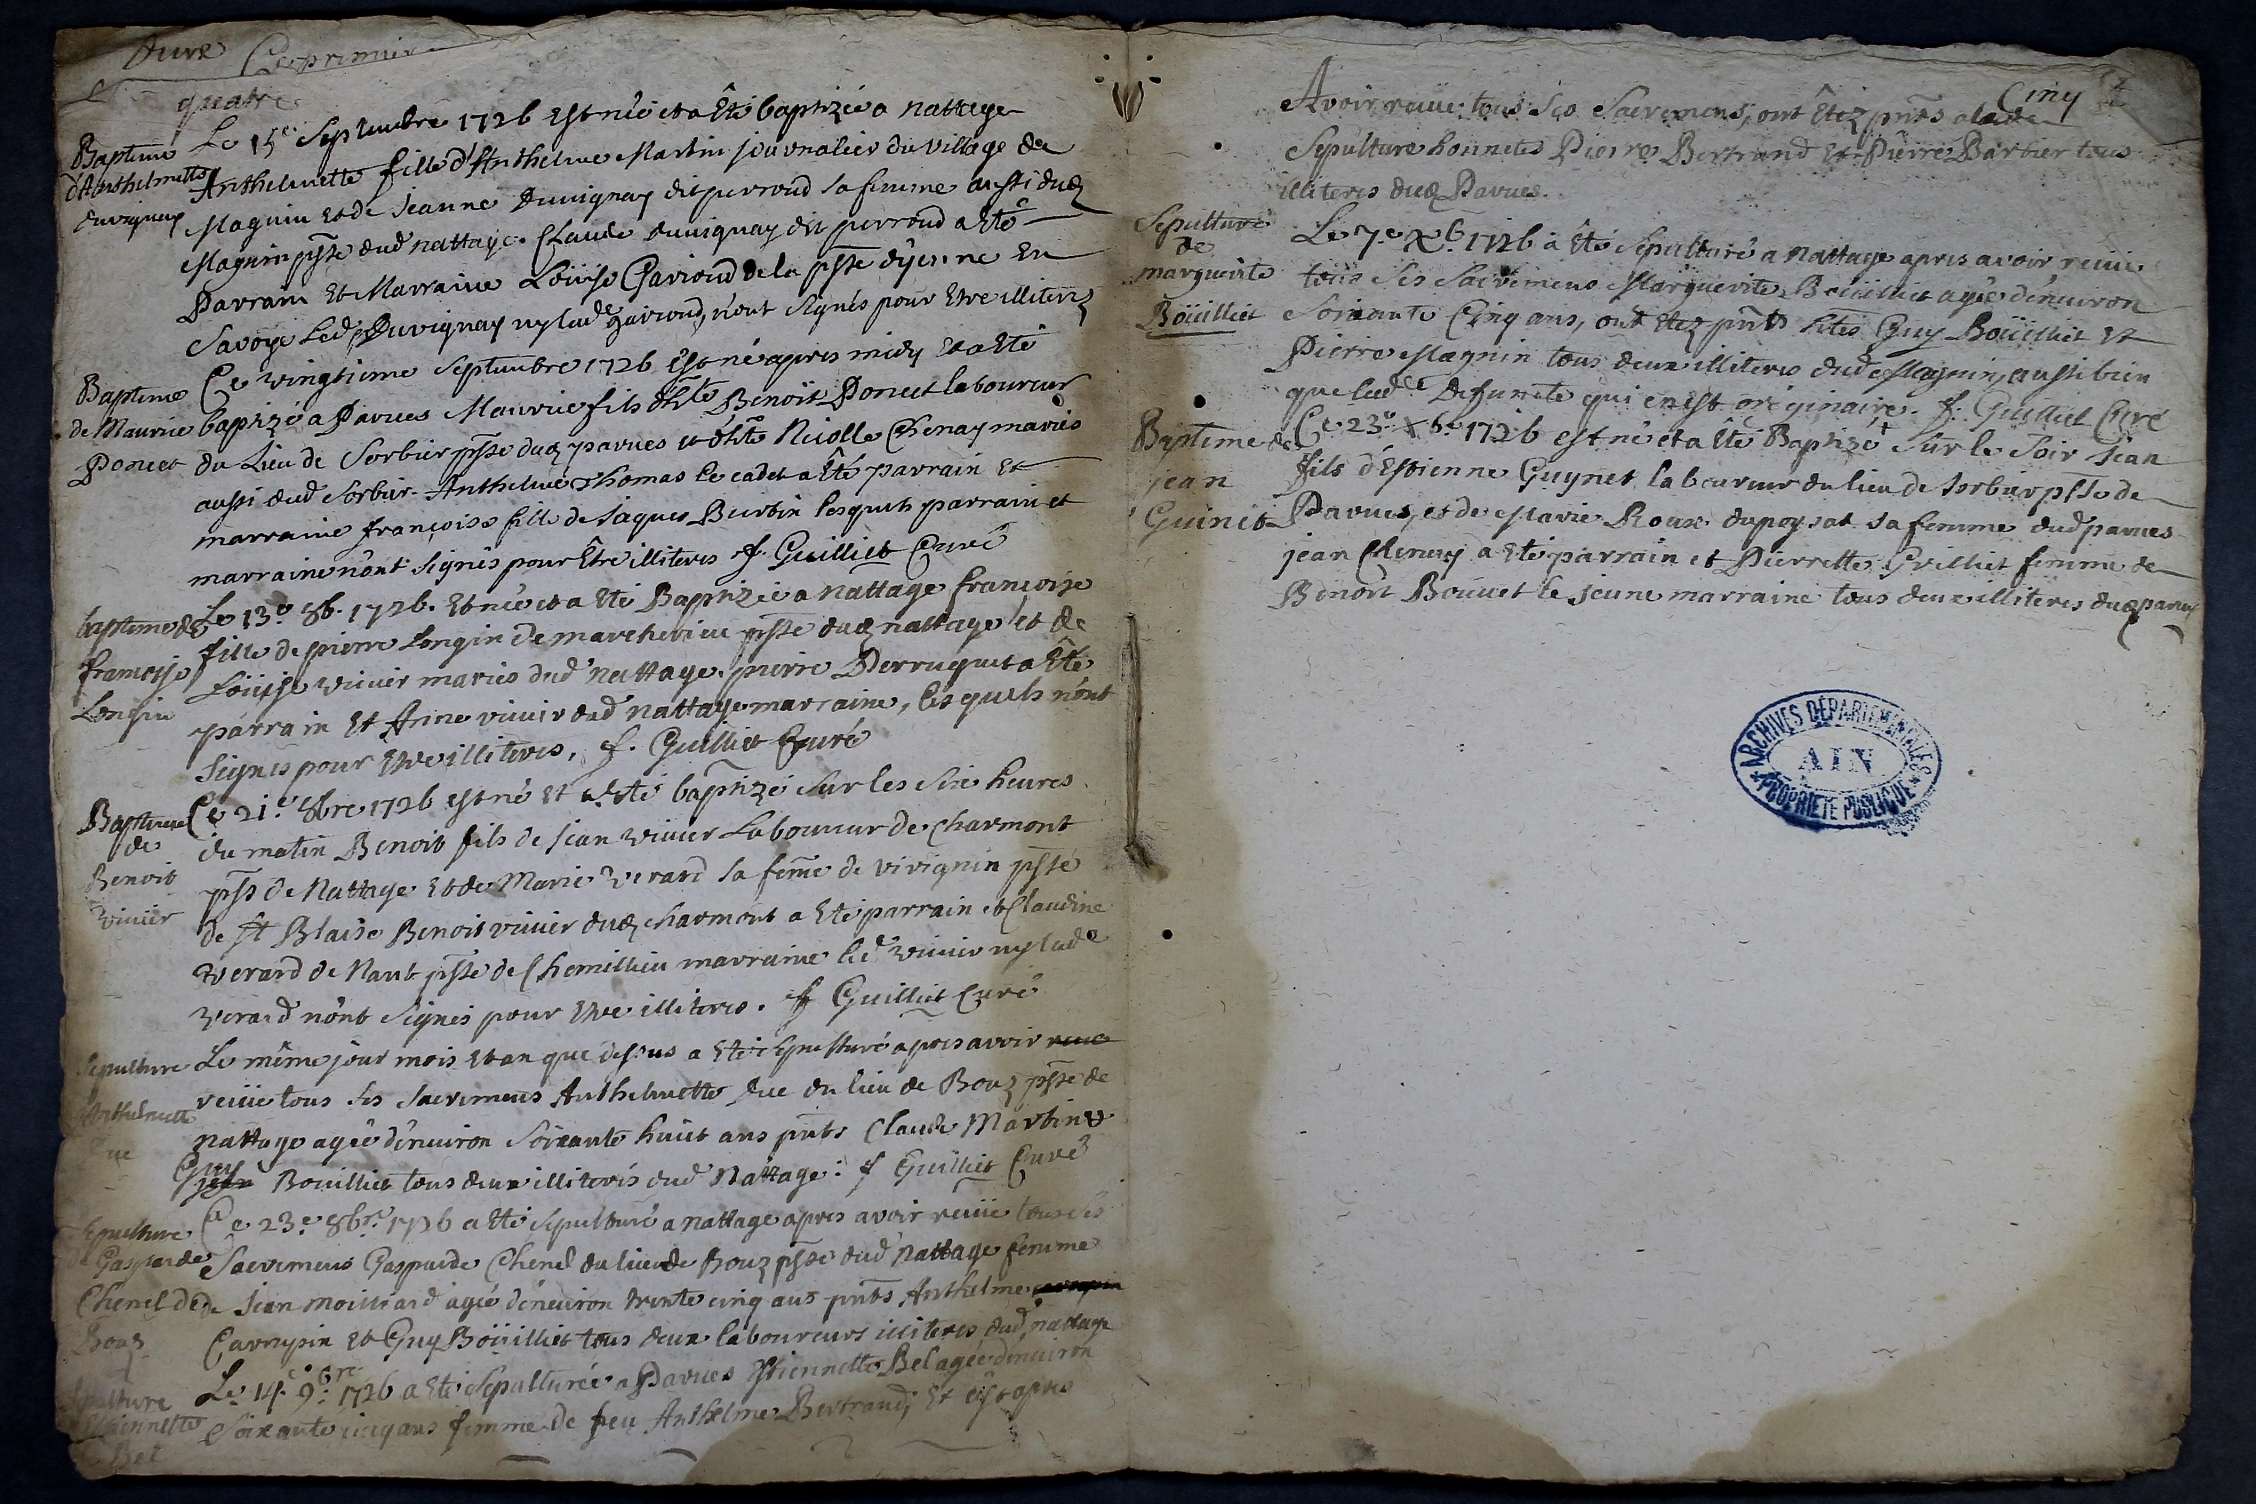 Dure Ce premier
quatre
Baptême d'Anthelmette duvignay
Le 15e Septembre 1726 Est née et a Eté baptizée a nattage
Anthelmette fille d'Anthelme Martin journalier du village de
Magnin et de Jeanne Duvignay dit perroud sa femme aussi dud
Magnin psse dud nattage. Claude duvignay dit perroud a Eté
Parrain Et Marraine Loüise Gavioud de la psse d'yenne En
Savoye Led Duvignay ny lade gavioud, n'ont signés pour Etre illiterés
Baptême de Maurice Poncet
Ce vingtieme Septembre 1726 Est né apres midy Et a Eté
baptizé a Parves Maurice fils d'hte Benoit Poncet laboureur
du Lieu de Sorbier psse dud parves et d'hte Nicolle Chenay mariés
aussi dud Sorbier. Anthelme Thomas le cadet a Eté parrain Et
marraine françoise fille de Jaques Burtin lesquels parrain et
marraine n'ont signés pour Être illiteres f. Guilliet Curé
baptême de françoise Longin
Le 13e 8b. 1726. Est née et a Eté Baptizée a nattage françoise
fille de pierre Longin de marcherieu psse dud nattage et de
Loüise vivier mariés dud nattage. pierre Perruquet a Eté
parrain Et Anne vivier dud nattage marraine, lesquels n'ont
Signés pour Etre illiteres, f. Guilliet Curé
Baptême de Benoit vivier
Ce 21e 8bre 1726 est né Et a Eté baptizé Sur les Sixe heures
du matin Benoit fils de Jean vivier Laboureur de Charmont
psse de Nattage Et de Marie verard sa feme de virignin psse
de St Blaise Benoit vivier dud charmont a Eté parrain et Claudine
verard de Nant psse de Chemillieu marraine led vivier ny lade
verard n'ont Signés pour Etre illiteres. f Guilliet Curé
Sepulture Anthelmette ue
Le même jour mois Et an que dessus a Eté Sepulturé apres avoir reuue
reüue tous ses sacremens Anthelmette Due du lieu de Bouz psse de
nattage agée d'environ soixante huit ans pnts Claude Martin et
Guy jean Boüilliet tous deux illiterés dud Nattage: f Guilliet Curé
Sepulture de Gasparde Chenel de Bouz
Ce 23e 8bre 1726 a Eté Sepulturé a nattage apres avoir reüüe tous ses
Sacremens Gasparde Chenel du lieu de Bouz psse dud Nattage femme
de Jean moilliard agée d'environ trente cinq ans pnts Anthelme
Carrupin Et Guy Boüilliet tous deux laboureurs illiteres dud nattage
Sepulture Estiennette Bel
Le 14e 9bre 1726 a Eté Sepulturée a Parves Estiennette Bel agée d'environ
Soixante cinq ans femme de feu Anthelme Bertrand, Et c'est apres
Cinq
Avoir reüue tous Ses Sacremens, ont Etez pnts a lade
Sepulture honnetes Pierre Bertrand Et Pierre Barbier tous
illiteres dud Parves.
Sepulture de marguerite Boüilliet
Le 7e Xb 1726 à Eté Sepulturé a nattage apres avoir reüüe
tous Ses Sacremens Marguerite Boüilliet agée d'environ
Soixante Cinq ans, ont Etez pnts htes Guy Boüilliet Et
Pierre Magnin tous deux illiteres dud Magnin, aussi bien
que lade Defuncte qui en est originaire. f. Guilliet Curé
Baptême de jean Guinet
Ce 23e Xbe 1726 est né et a Eté Baptizé Sur le Soir Jean
fils d'Estienne Guynet laboureur du lieu de Sorbier psse de
Parves, et de Marie Roux dupoysat sa femme dud parves
jean Chenay a Eté parrain et Pierrette Guilliet femme de
Benoit Bouvet le jeune marraine tous deux illiteres dud parves
ARCHIVES DÉPARTEMENTALES
AIN
PROPRIÉTÉ PUBLIQUE